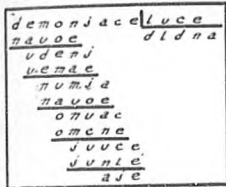 demonjace luce
nauoe dldna
udenj
uemae
numja
nauoe
onuac
omcne
juuce
junle
aje